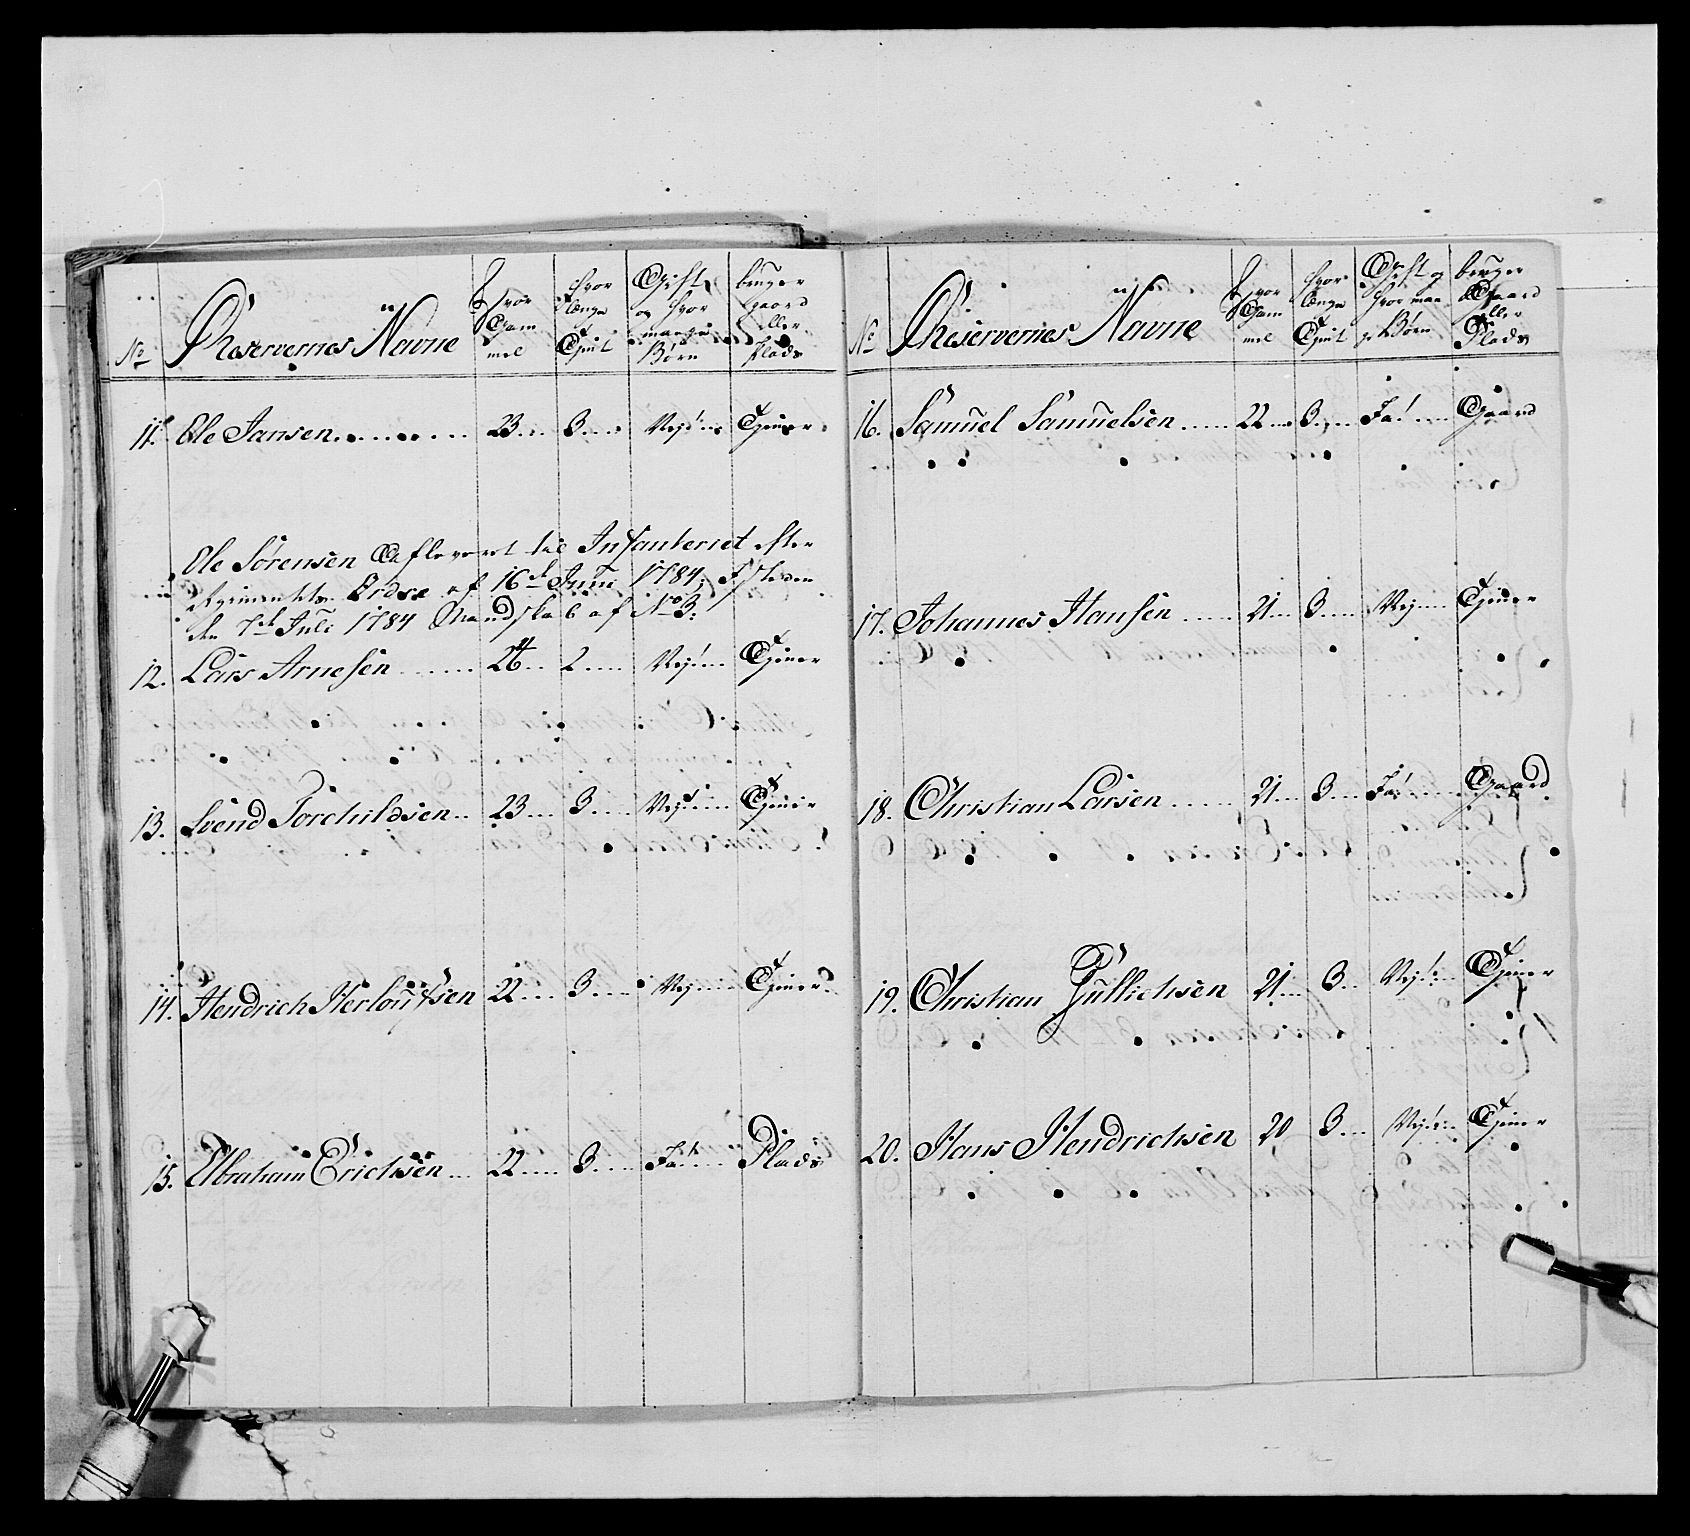 No
Reservernes Navne
Hvor Gam mel
hvor længe Tient
Gift, og hvor mange Børn
bruger gaard eller Plads
11. Ole Jansen 23 3 Nej Tjener
Ole Sørensen afleveret til Infanteriet efter
Regimentets Ordre af 16de Junii 1784, I steden
den 7de Juli 1784 Mandskab af No 3.
12. Lars Arnesen 24 2 Nej Tjener
13. Svend Torchildsen 23 3 Nej Tjener
14. Hendrich Herlouffsen 22 3 Nej Tjener
15. Abraham Erichsen 22 3 Ja Plads
No
Reservernes Navne
Hvor Gam mel
hvor længe Tjent
Gift og hvor man ge Børn
bruger Gaard eller Plads
16. Samuel Samuelsen 22 3 Ja Gaard
17. Johannes Hansen 21 3 Nej Tjener
18. Christian Larsen 21 3 Ja Gaard
19. Christian Gullichsen 21 3 Nej Tjener
20. Hans Hendrichsen 20 3 Nej Tjener